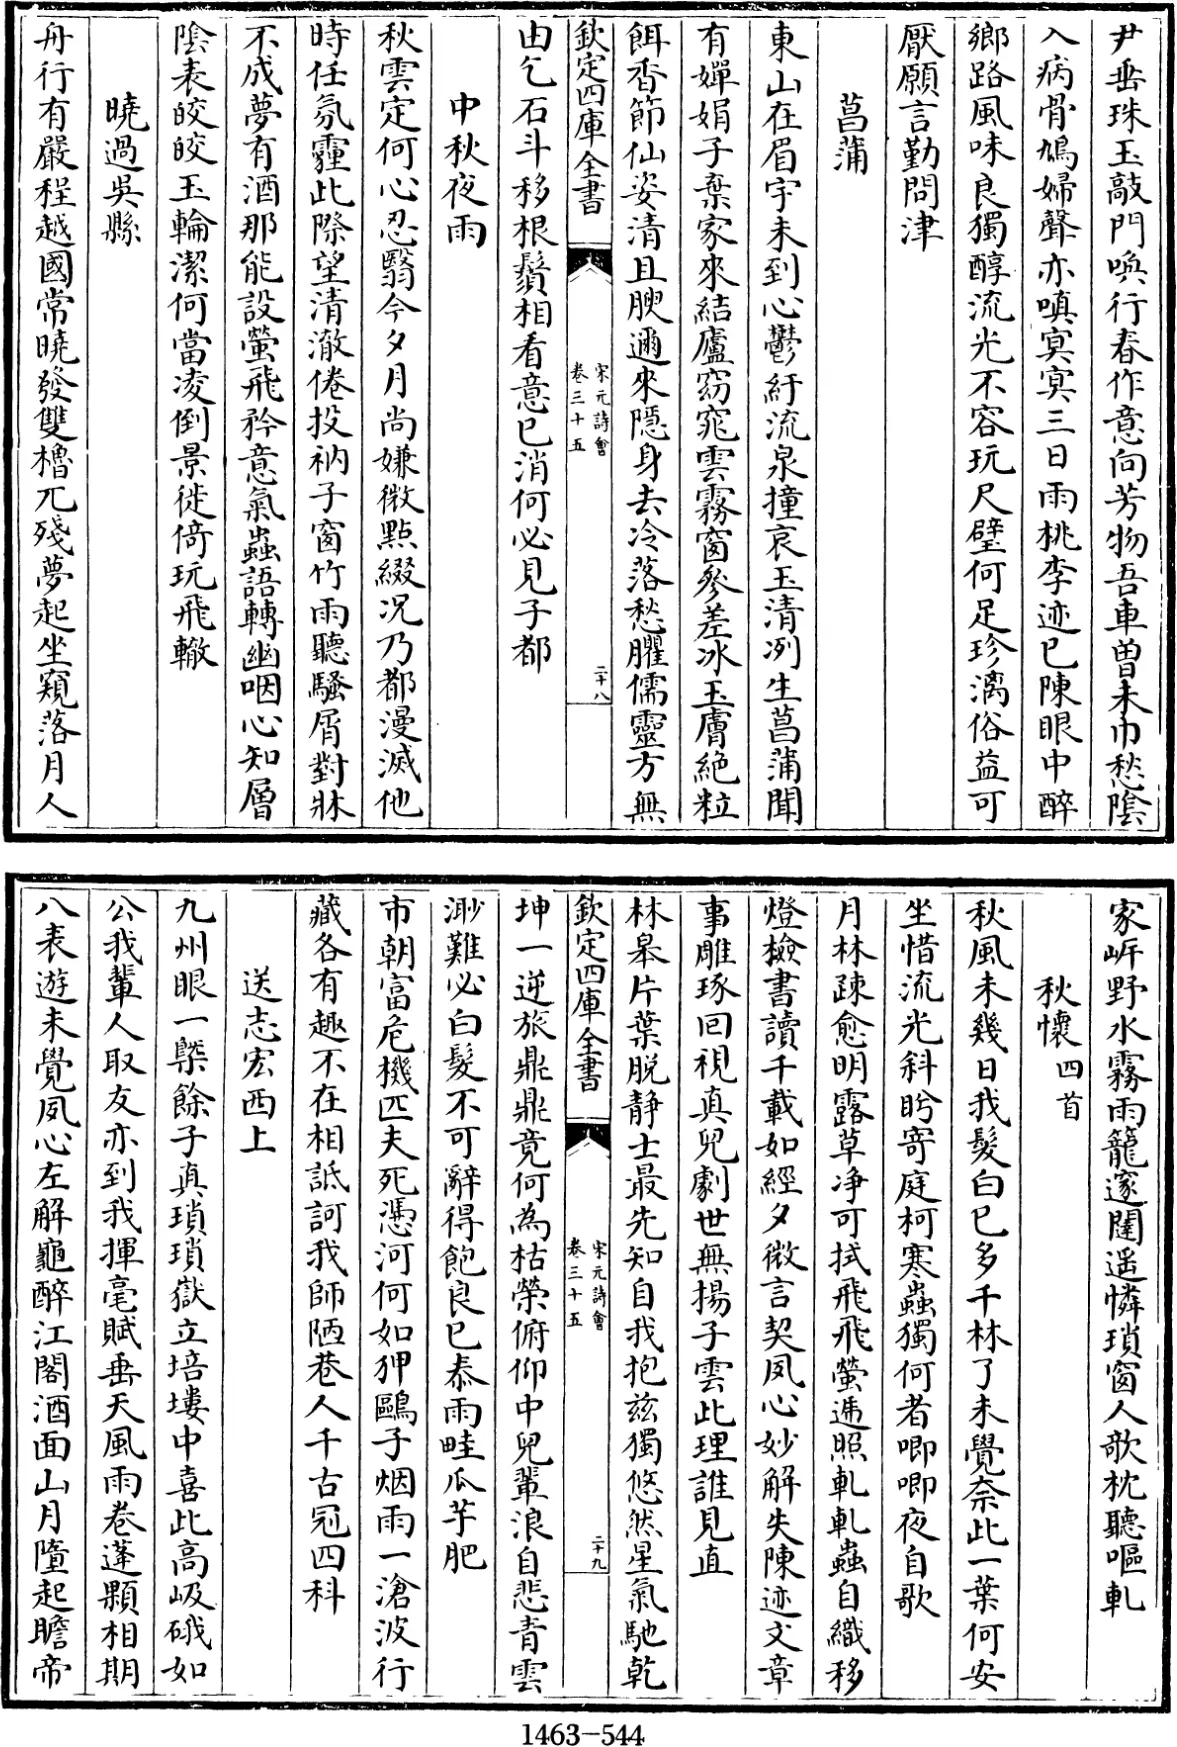 尹垂珠玉敲門喚行春作意向芳物吾車曽未巾愁陰
入病骨鳩婦聲亦嗔冥冥三日雨桃李迹已陳眼中醉
鄉路風味良獨醇流光不容玩尺璧何足珍漓俗益可
厭願言勤問津
菖蒲
東山在眉宇未到心鬱紆流泉撞哀玉清冽生菖蒲聞
有嬋娟子棄家來結廬窈窕雲霧窗參差冰玉膚絶粒
餌香節仙姿清且腴邇來隱身去冷落愁臞儒靈方無
欽定四庫全書
宋元詩會
卷三十五
二十八
由乞石斗移根鬚相看意已消何必見子都
中秋夜雨
秋雲定何心忍翳今夕月尚嫌微㸃綴况乃都漫滅他
時任氛霾此際望清澈倦投衲子窗竹雨聽騷屑對牀
不成夢有酒那能設螢飛矜意氣蟲語轉幽咽心知層
陰表皎皎玉輪潔何當凌倒景徙倚玩飛轍
曉過吳縣
舟行有嚴程越國常曉發雙櫓兀殘夢起坐窺落月人
家㟁野水霧雨籠邃闥遥憐瑣窗人欹枕聽嘔軋
秋懷四首
秋風未幾日我髮白已多千林了未覺奈此一葉何安
坐惜流光斜眄寄庭柯寒蟲獨何者唧唧夜自歌
月林疎愈明露草净可拭飛飛螢逓照軋軋蟲自織移
燈檢書讀千載如經夕微言契夙心妙解失陳迹文章
事雕琢回視真兒劇世無揚子雲此理誰見直
林皋片葉脱静士最先知自我抱兹獨悠然星氣馳乾
欽定四庫全書
宋元詩會
卷三十五
二十九
坤一逆旅鼎鼎竟何為枯榮俯仰中兒輩浪自悲青雲
渺難必白髮不可辭得飽良已泰雨畦瓜芋肥
市朝富危機匹夫死憑河何如狎鷗子烟雨一滄波行
藏各有趣不在相詆訶我師陋巷人千古冠四科
送志宏西上
九州眼一㮣餘子真瑣瑣嶽立培塿中喜此高岋硪如
公我輩人取友亦到我揮毫賦垂天風雨卷蓬顆相期
八表遊未覺夙心左解龜醉江閣酒面山月墮起瞻帝
1463-544